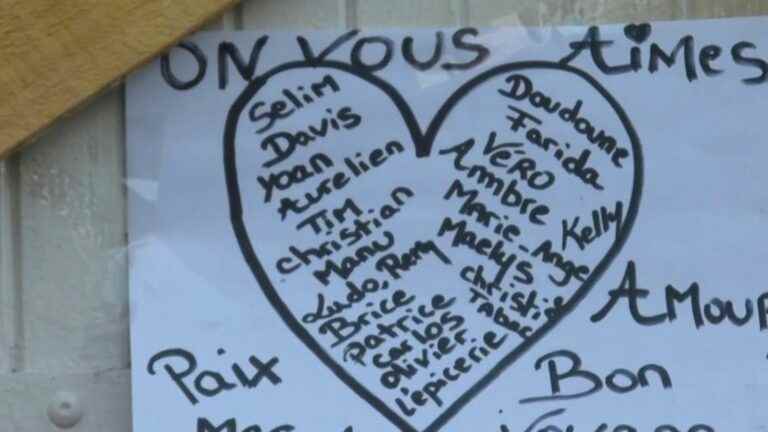 ON VOUS AiMES
Selim
Davis
Yoan
Aurelien
TIM
christian
Manu
Ludo, Remy
Brice
Patrice
Carlos
Olivier
L'epicerie
Doudoune
Farida
VÉRO
Ambre
Marie-Ange
Kelly
Maelys
christie
Tabac
AMOUR
Paix
Bon